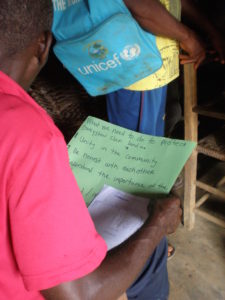 unicef
What we need to do to protect
Unity in the Community
be honest with eachother
the importance of the